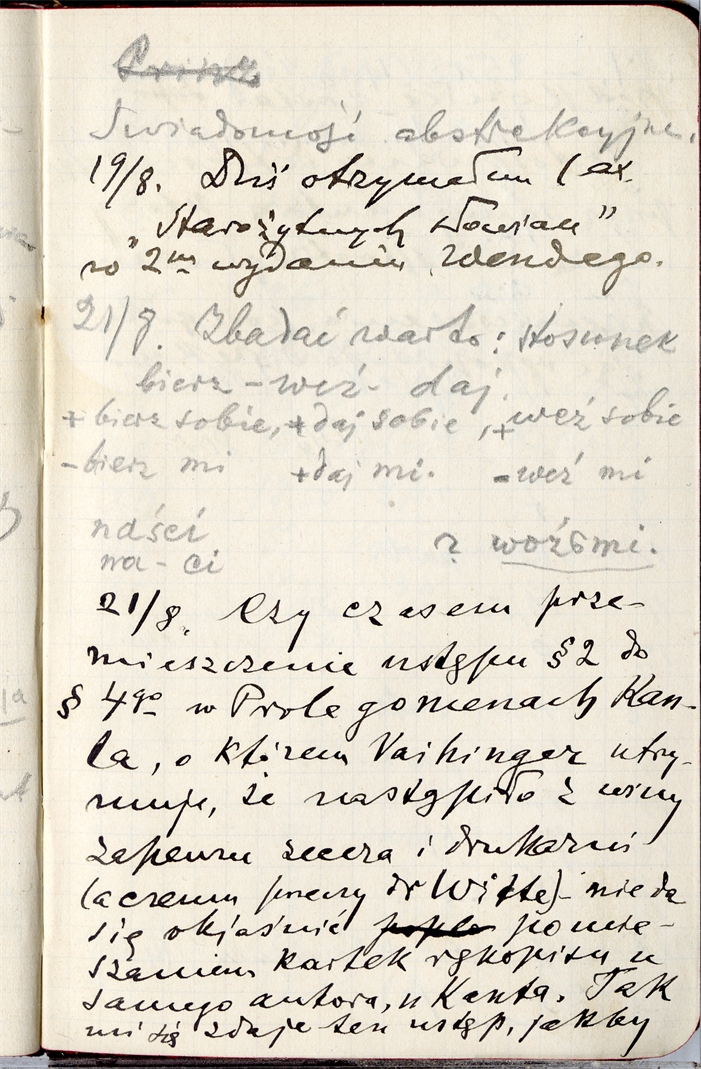 Świadomość abstrakcyjna.
19/8. Dziś otrzymałem (ex.
„Starożytnych Słowian”
w 2m wydaniu Wendego.
21/8. Zbadać warto: stosunek
bierz – weź – daj.
+ bierz sobie, + daj sobie, + weź sobie
– bierz mi + daj mi. – weź mi
naści ? woźmi.
na – ci
21/8. Czy czasem prze-
mieszczenie ustępu § 2 do
§ 4go w Prolegomenach Kan-
ta, o którem Vaihinger utrzy-
muje, że nastąpiło z winy
zapewne zecera i drukarni
(a czemu przeczy dr Witte) – nie da
się objaśnić pomie-
szaniem kartek rękopisu u
samego autora, u Kanta. Tak
mi się zdaje ten ustęp, jakby